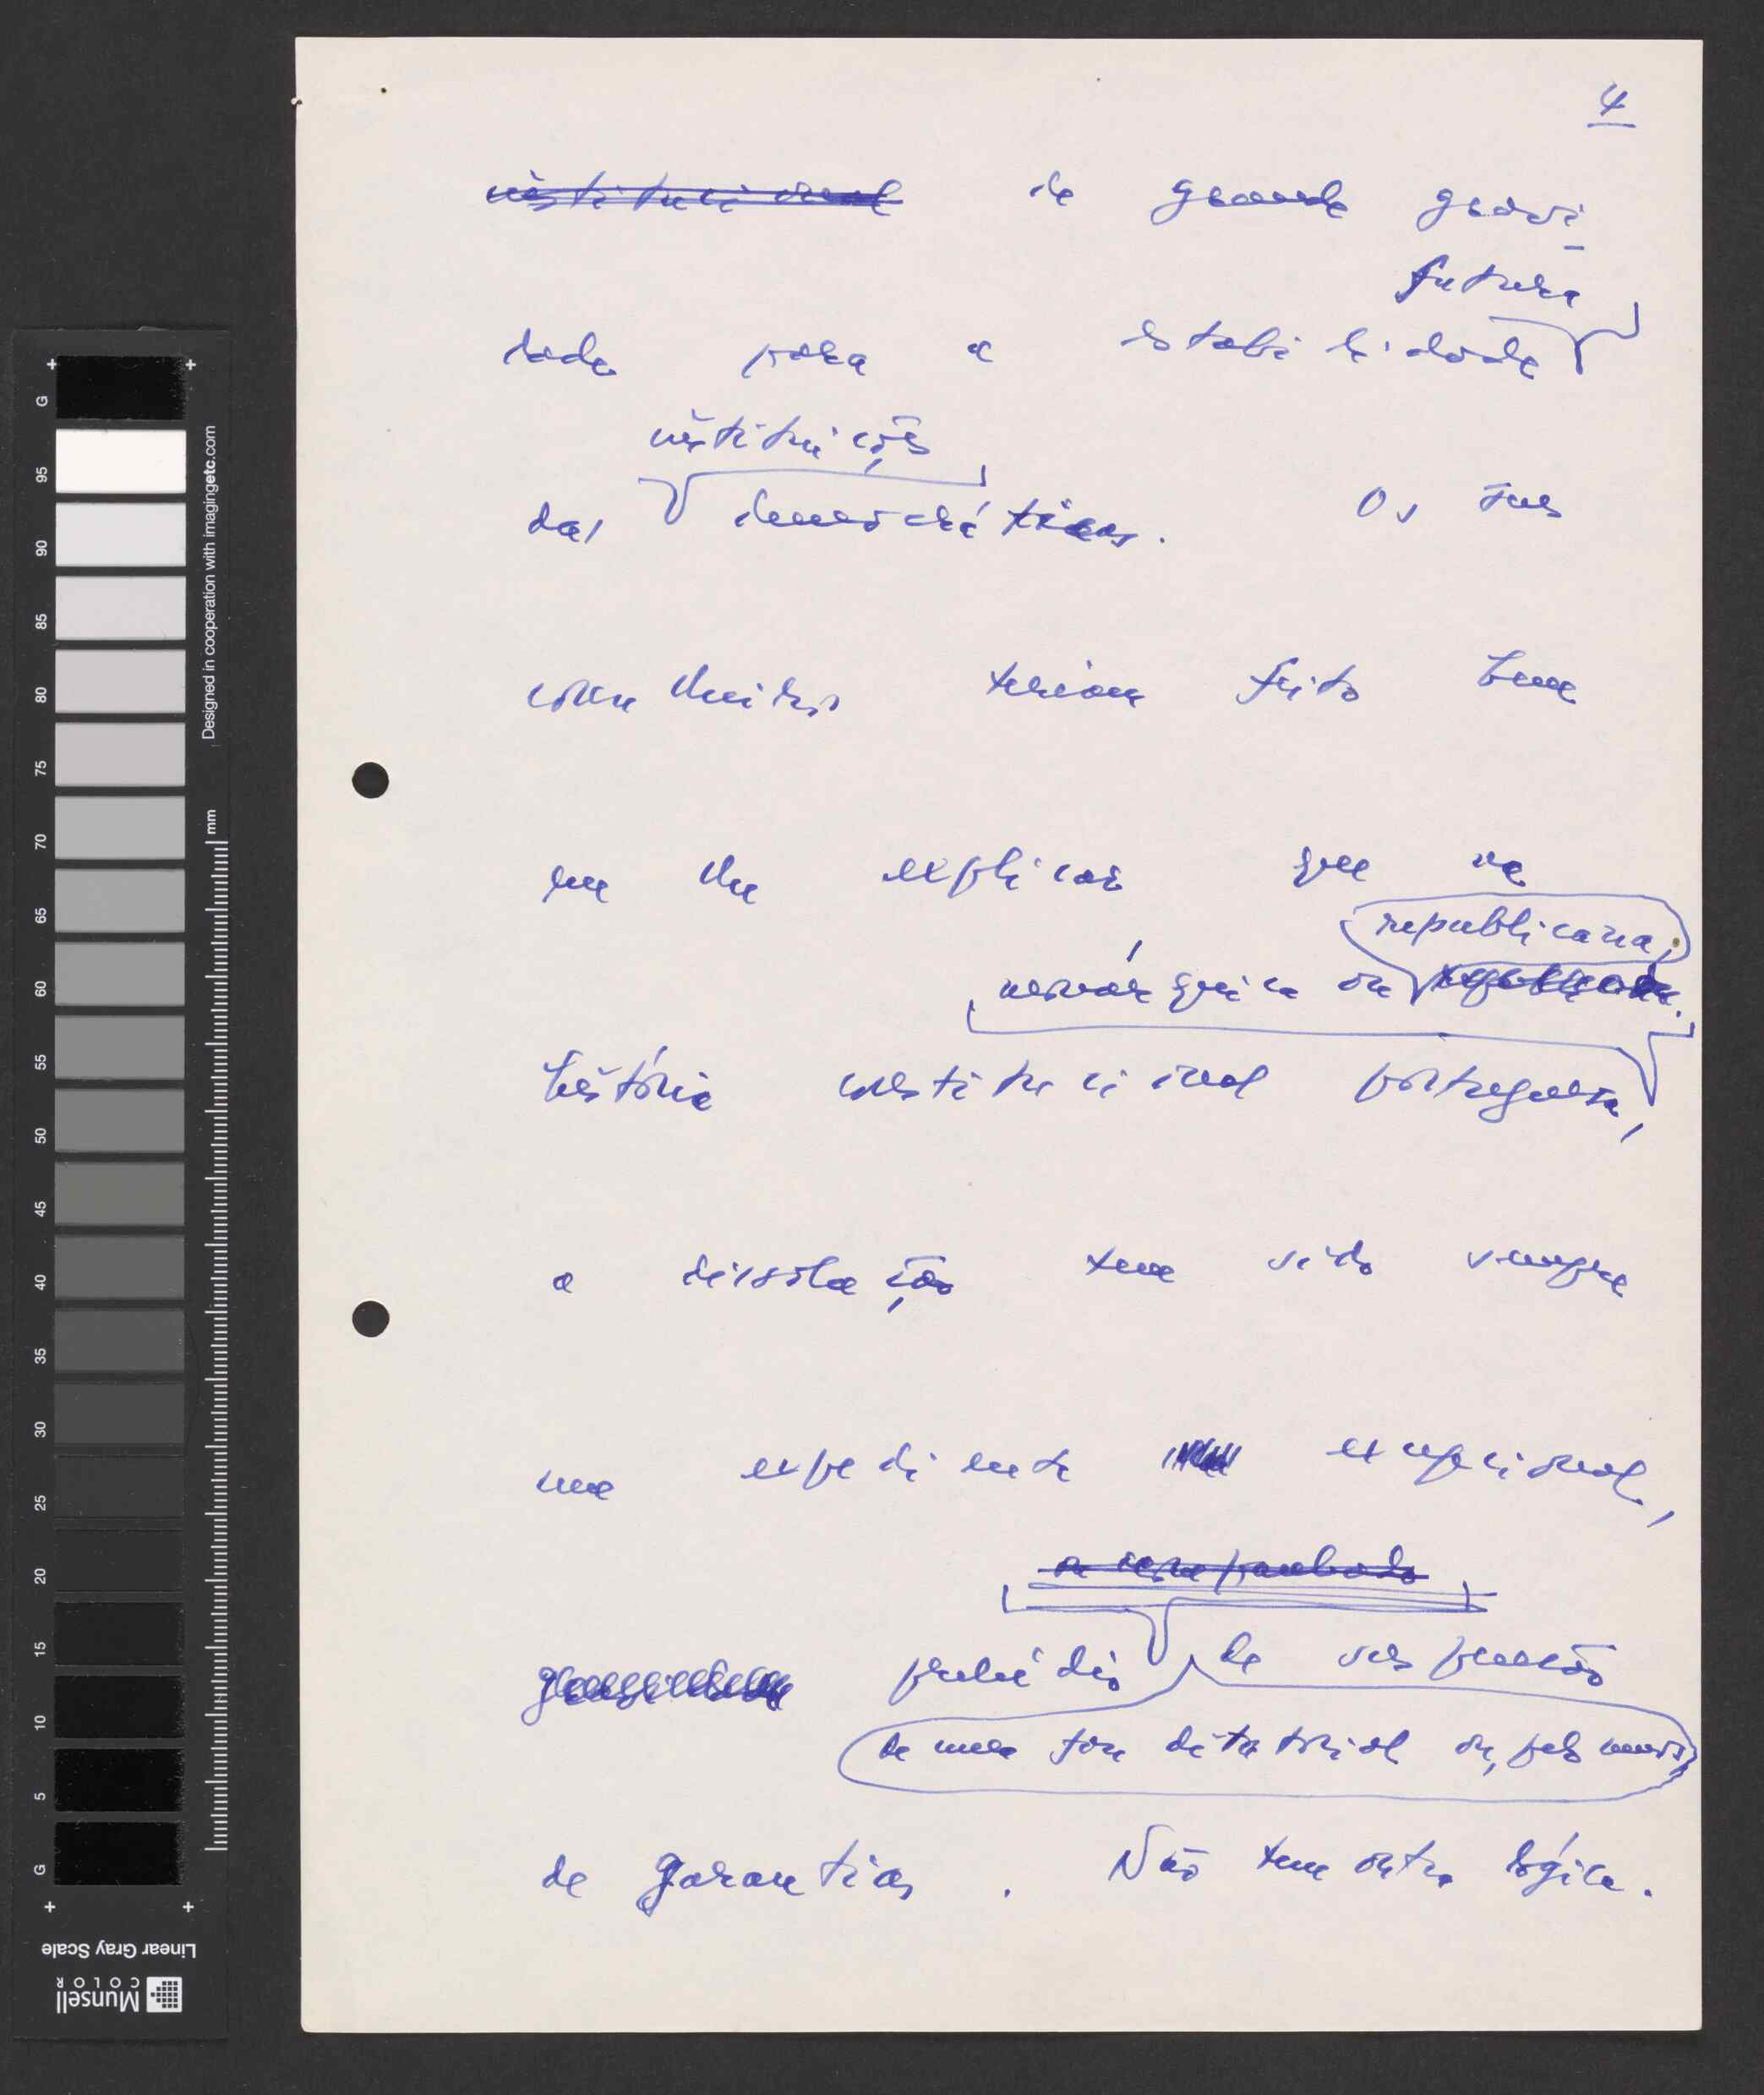 4
institucional de grande gravi-
futura
dade para a estabilidade
instituições
das democráticas. Os seus
conselheiros teriam feito bem
em lhe explicar que na
republicana,
monárquica ou republicana.
história constitucional portuguesa,
a dissolução tem sido sempre
um expediente excepcional,
acompanhado
prelúdio de suspensão
de uma fase ditatorial ou, pelo menos,
de garantias. Não tem outra lógica.
G
95
90
85
80
75
70
65
60
55
50
45
40
35
30
25
20
15
10
5
G
mm
Designed in cooperation with imagingetc.com
Linear Gray Scale
Munsell
COLOR